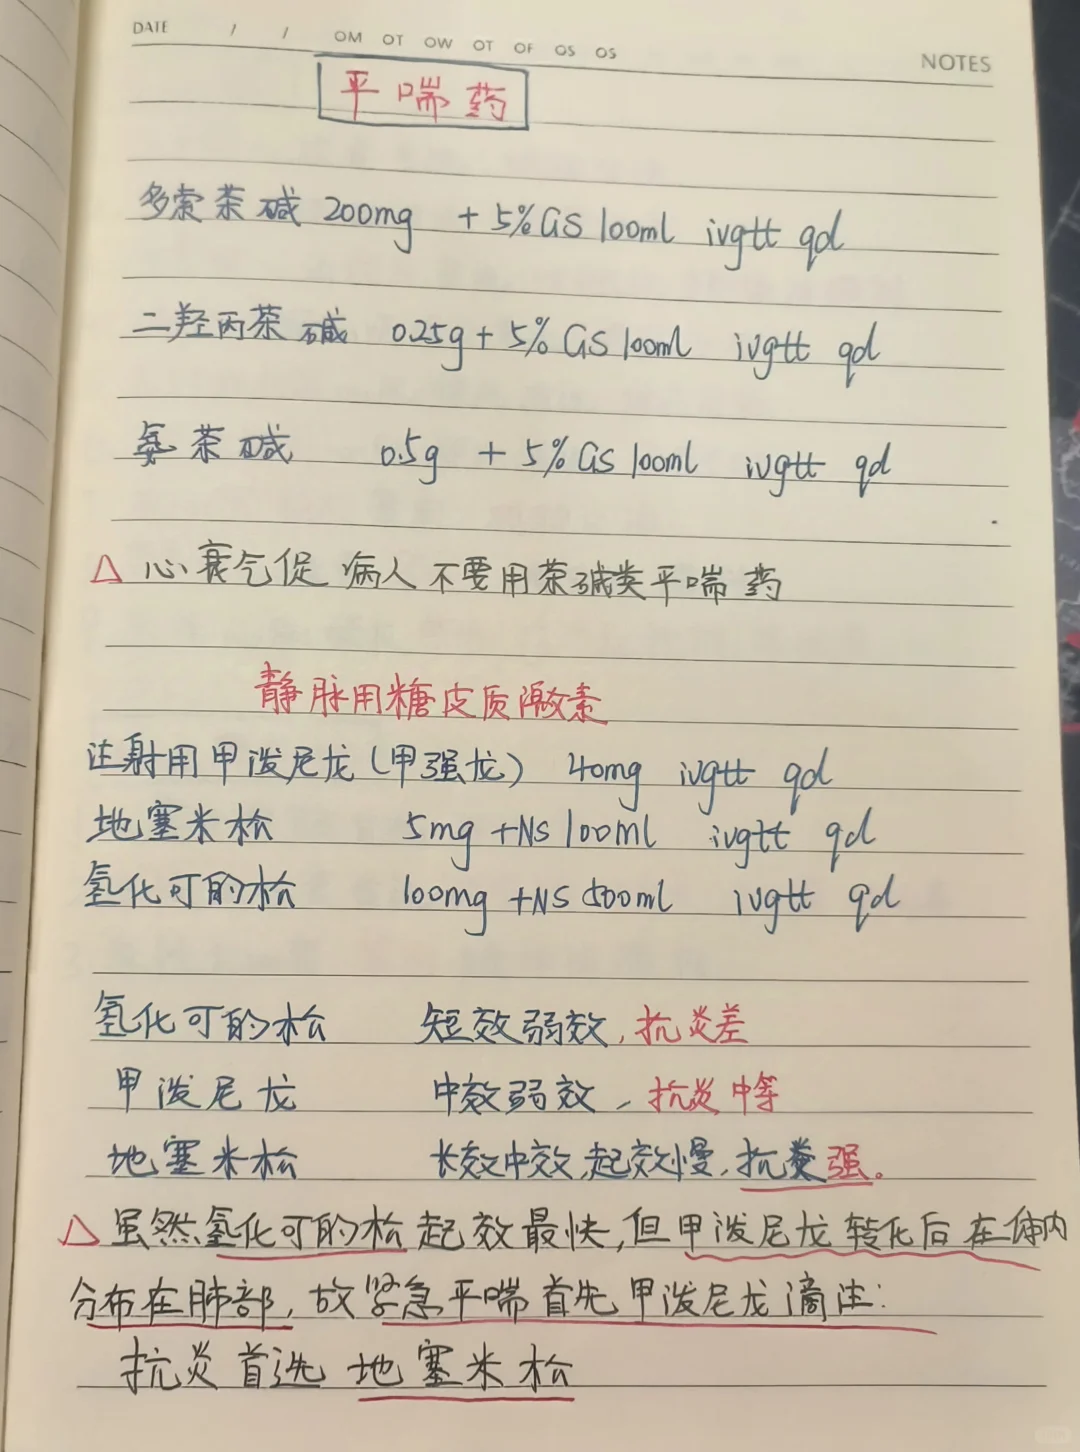 DATE / / OM OT OW OT OF OS OS NOTES
平喘药
多索茶碱 200mg + 5%GS 100ml ivgtt qd
二羟丙茶碱 0.25g + 5% GS 100ml ivgtt qd
氨茶碱 0.5g + 5% GS 100ml ivgtt qd
△ 心衰气促病人不要用茶碱类平喘药
静脉用糖皮质激素
注射用甲泼尼龙(甲强龙) 40mg ivgtt qd
地塞米松 5mg +NS 100ml ivgtt qd
氢化可的松 100mg +NS 500ml ivgtt qd
氢化可的松 短效弱效,抗炎差
甲泼尼龙 中效弱效,抗炎中等
地塞米松 长效中效,起效慢,抗炎强。
△ 虽然氢化可的松起效最快,但甲泼尼龙转化后在体内
分布在肺部,故紧急平喘首先甲泼尼龙滴注:
抗炎首选地塞米松